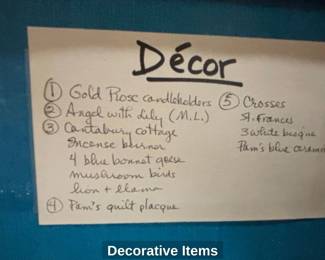 Décor
① Gold Rose candleholders
② Angel with Lily (M.L.)
③ Cantabury cottage
Incense burner
4 blue bonnet geese
mushroom birds
lion + llama
④ Pam's quilt placque
⑤ Crosses
St. Frances
3 white bisque
Pam's blue ceramic
Decorative Items